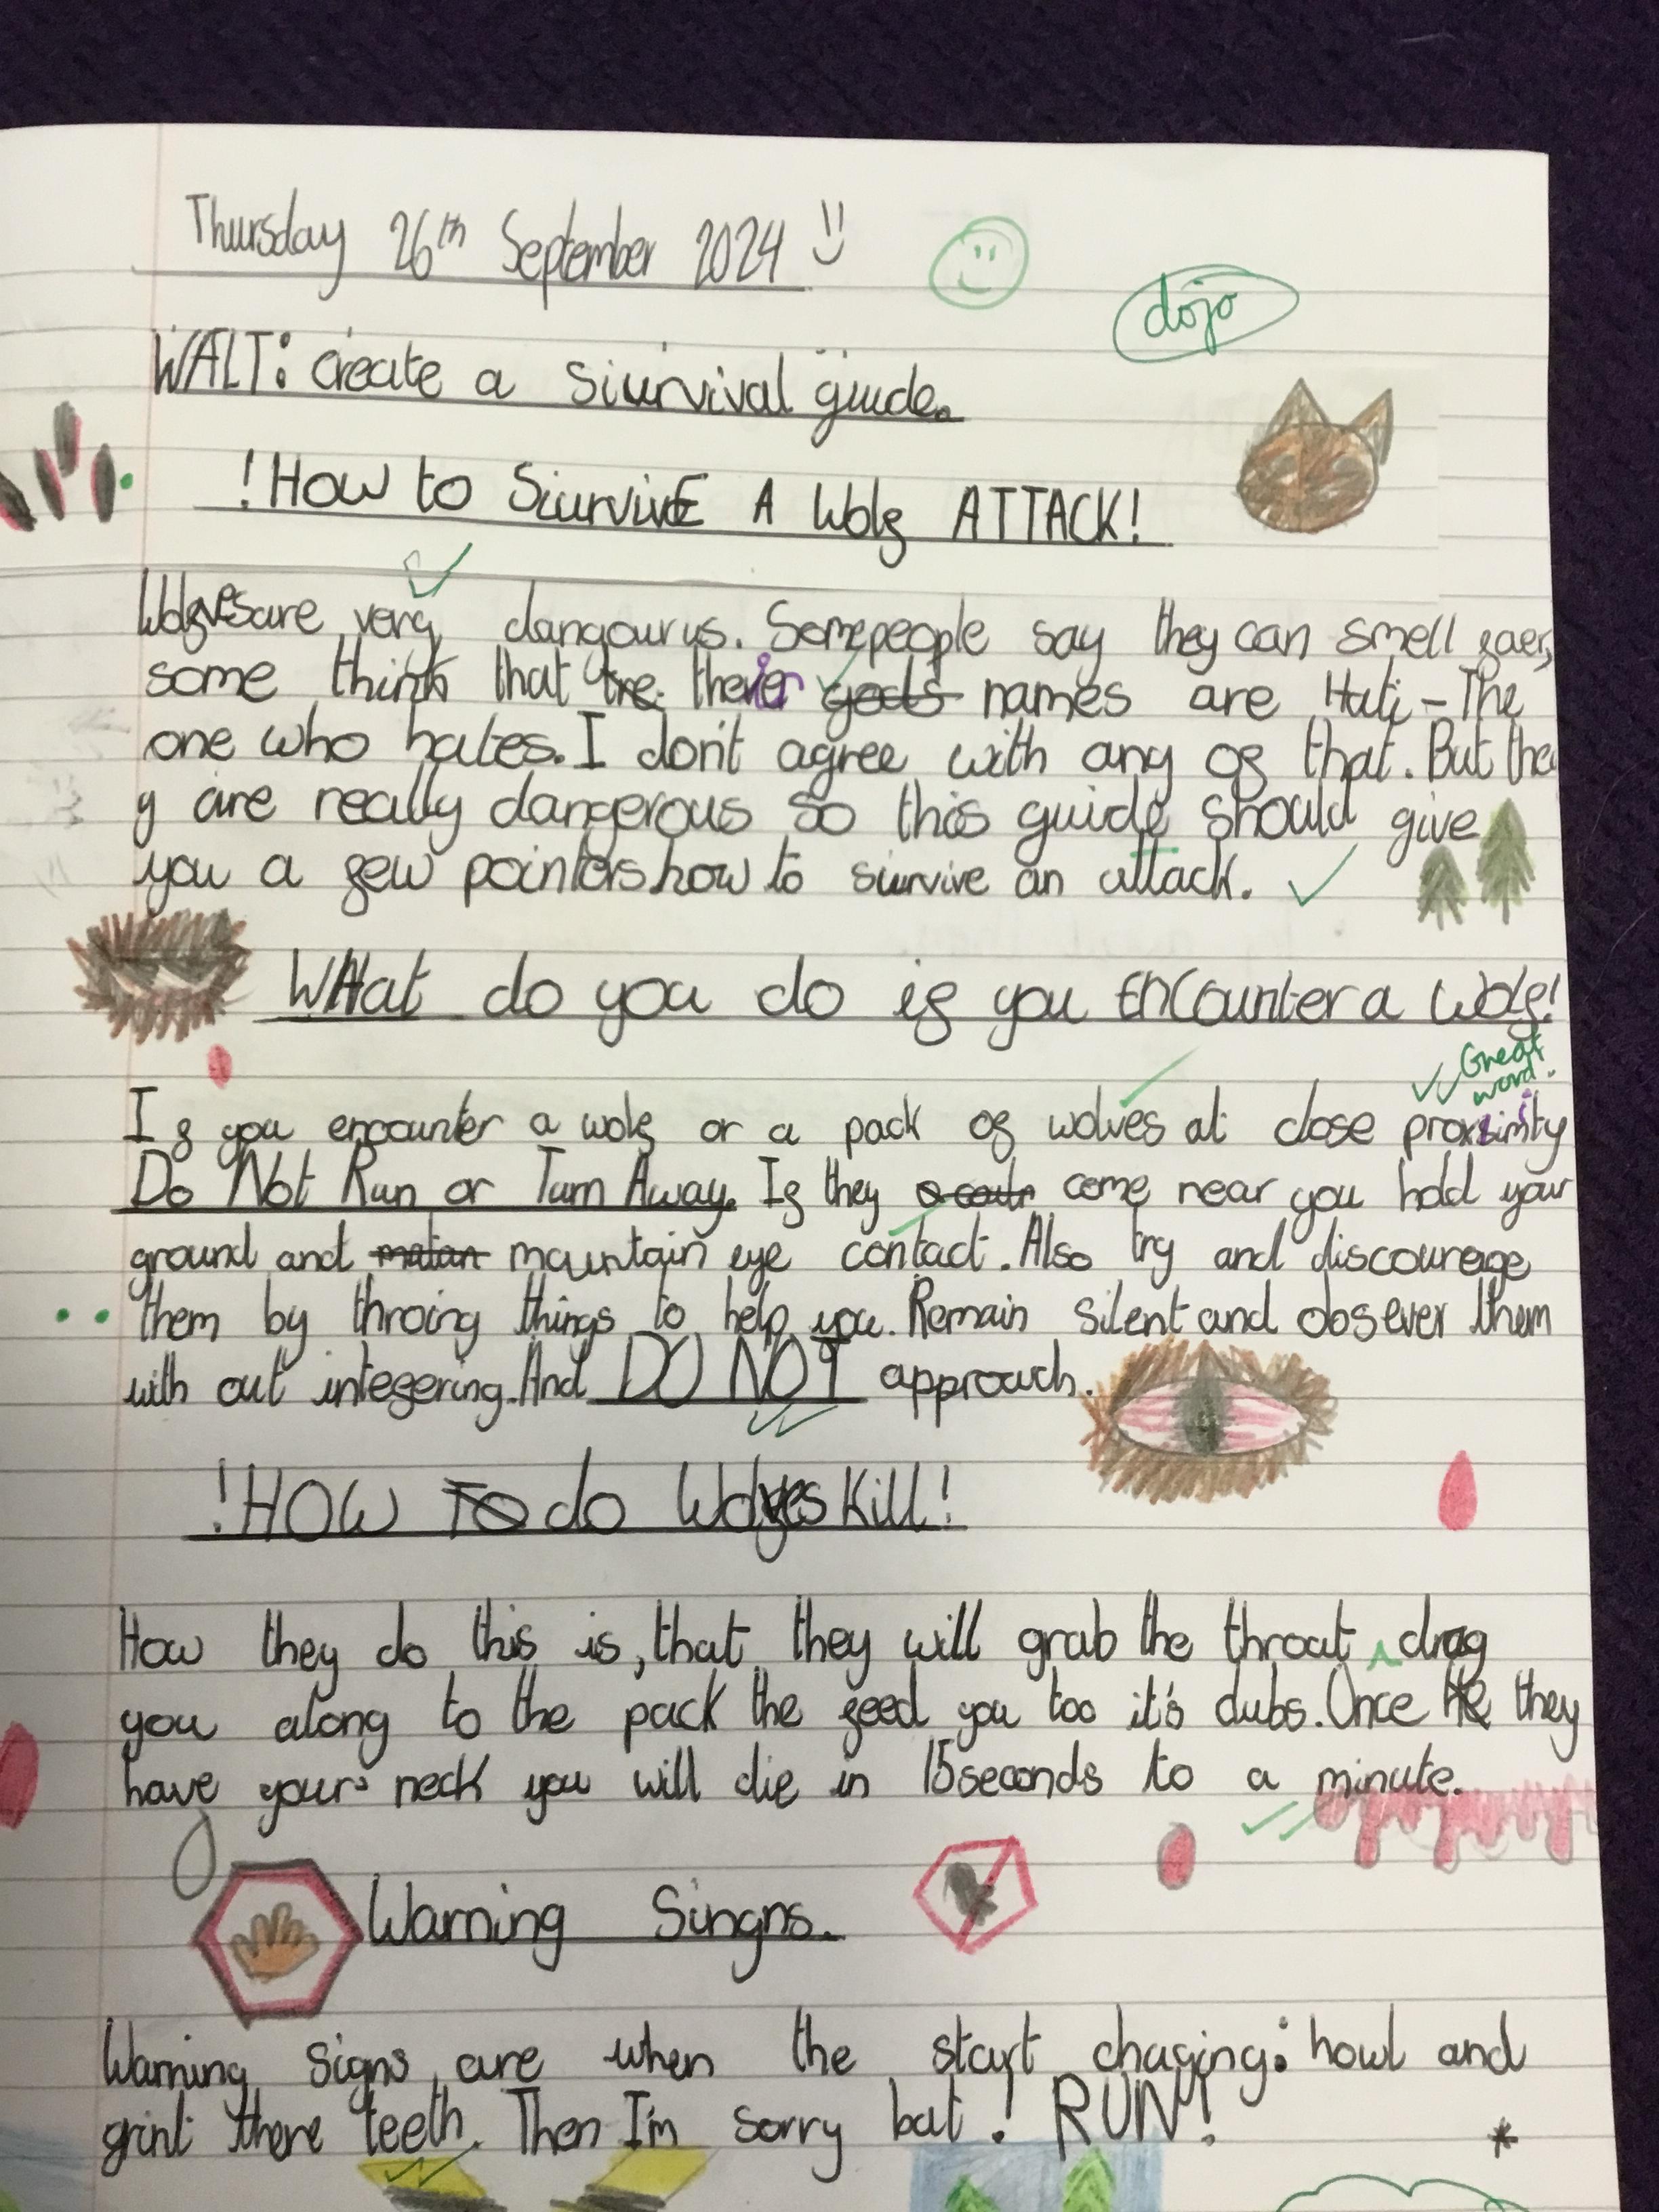 Thursday 26th September 2024
dojo
WALT: create a siurvival guide.
!HOW to SiurvivE A Wolf ATTACK!
Wolfves are very dangourus. Some people say they can smell faer,
some think that tre their gods names are Hati - The
one who hates. I don't agree with any of that. But the
y are really dangerous so this guide should give
you a few pointers how to siurvive an attack.
WHat do you do if you Encounter a Wolf!
Great
word.
If you encounter a wolf or a pack of wolves at close proximity
Do Not Run or Turn Away. If they come near you hold your
ground and matan mountain eye contact. Also try and discoureage
them by throing things to help you. Remain silent and obsever them
with out intefering. And DO NOT approach.
!HOW TO do Wolves Kill!
How they do this is, that they will grab the throat drag
you along to the pack the feed you too it's cubs. Once he they
have your neck you will die in 15 seconds to a minute.
Warning Singns.
Warning signs are when the start chasing: howl and
grint there teeth. Then I'm sorry bat! RUN! *